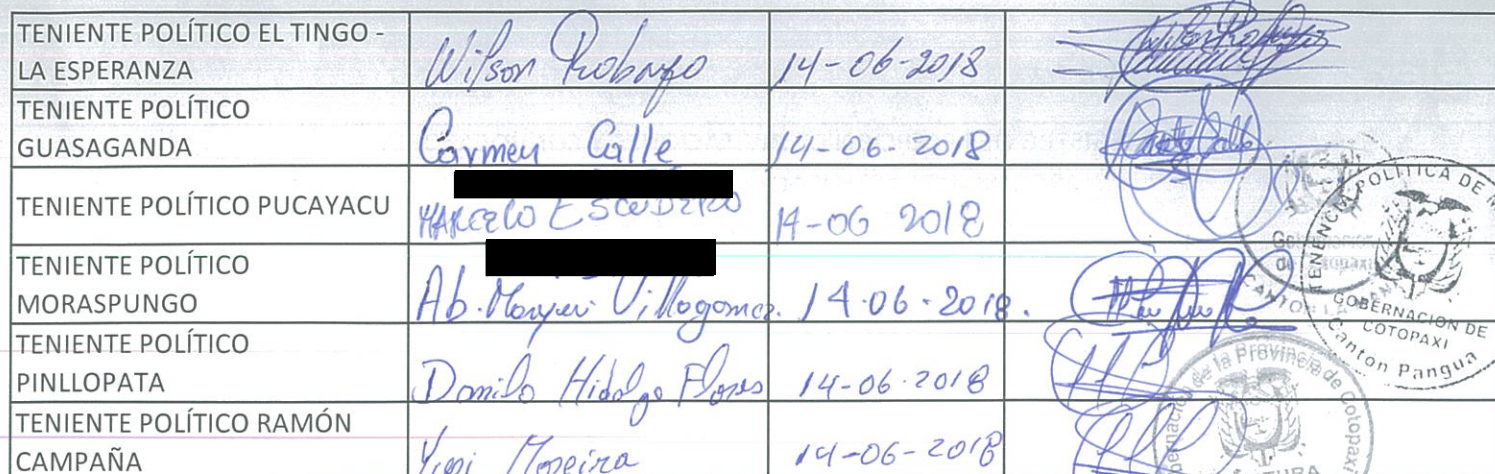 TENIENTE POLÍTICO EL TINGO -
LA ESPERANZA
Wilson Robayo 14-06-2018
TENIENTE POLÍTICO
GUASAGANDA
Carmen Calle 14-06-2018
TENIENTE POLÍTICO PUCAYACU
MARCELO ESCUDERO 14-06 2018
TENIENTE POLÍTICO
MORASPUNGO
Ab. Villagomez. 14.06.2018.
TENIENTE POLÍTICO
PINLLOPATA
Danilo Hidalgo Flores 14-06-2018
TENIENTE POLÍTICO RAMÓN
CAMPAÑA
Moreira 14-06-2018
TENENCIA POLÍTICA DE
GOBERNACION DE
COTOPAXI
Cantón Pangua
Gobernación
de Cotopaxi
CANTON LA
de la Provincia de Cotopaxi